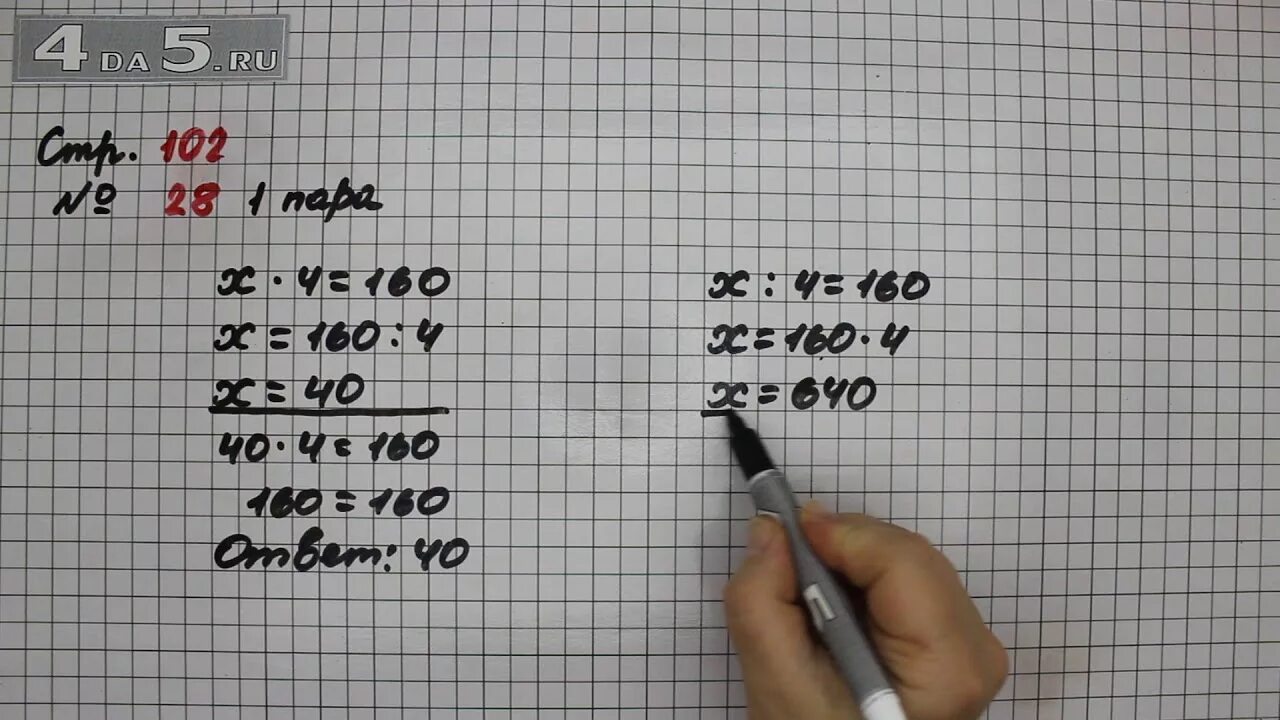 4DA5.RU
Стр. 102
№ 28 1 пара
x · 4 = 160
x = 160 : 4
x = 40
40 · 4 = 160
160 = 160
Ответ: 40
x : 4 = 160
x = 160 · 4
x = 640